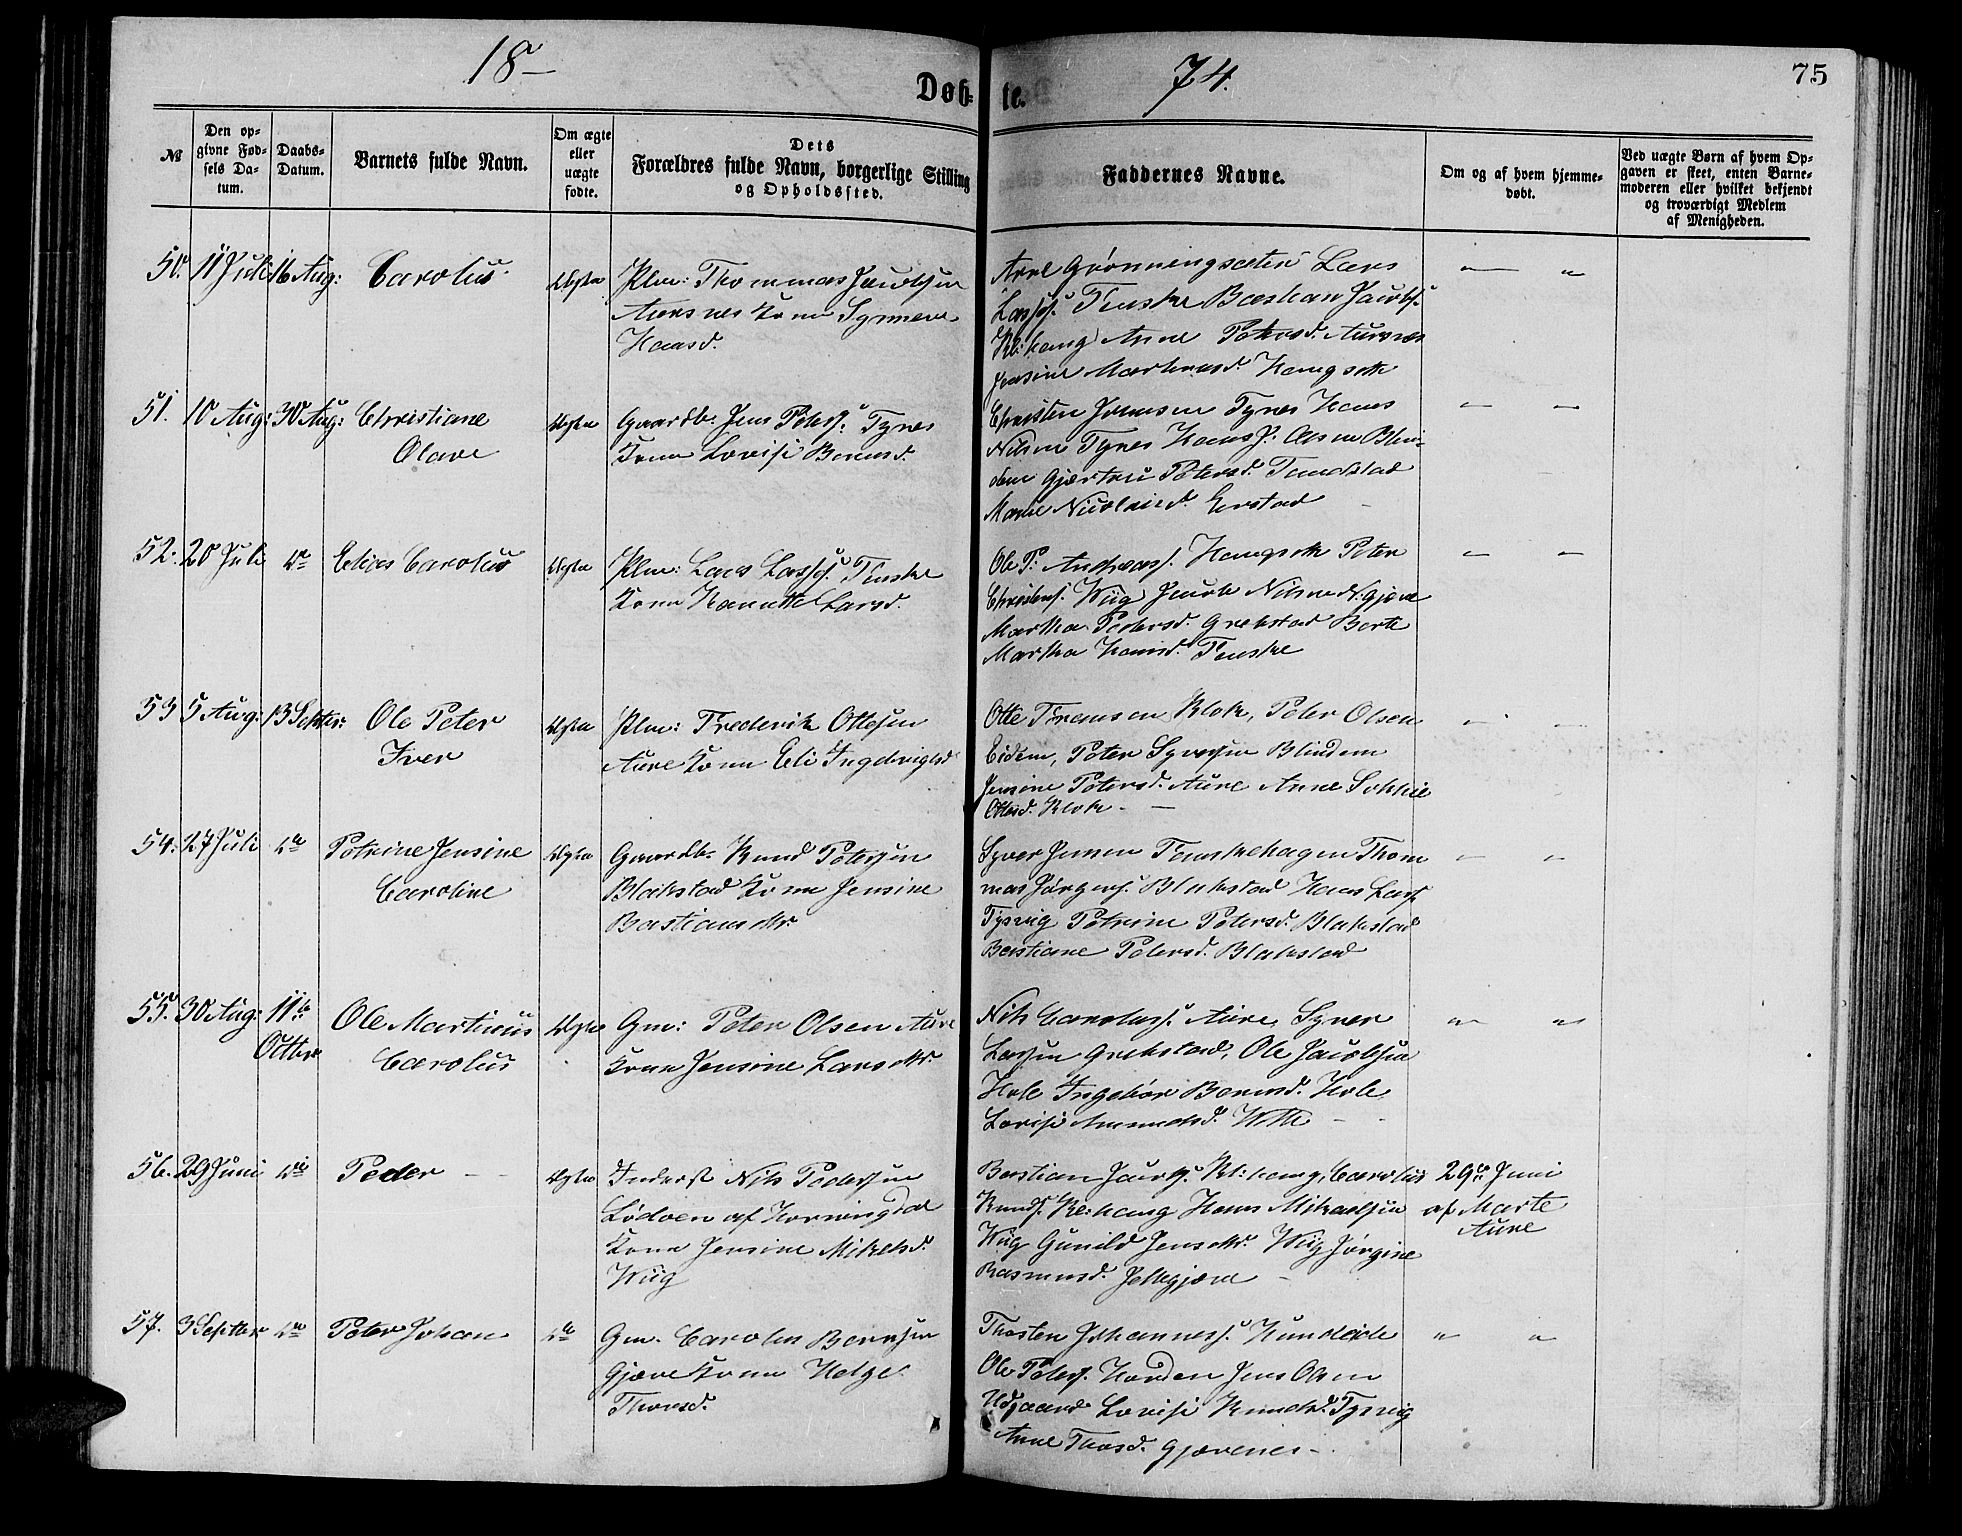 18— 74. 75
Døb= te.
№
Den op=
givne Fød=
sels Da=
tum.
Daabs=
Datum.
Barnets fulde Navn.
Om ægte
eller
uægte
fødte.
Dets
Forældres fulde Navn, borgerlige Stilling
og Opholdssted.
Faddernes Navne.
Om og af hvem hjemme=
døbt.
Ved uægte Børn af hvem Op=
gaven er skeet, enten Barne=
moderen eller hvilket bekjendt
og troværdigt Medlem
af Menigheden.
50. 11 Juli 16 Aug: Carolus Ægte
Plm: Thommas Jacobsen
Aursnes Kone Synneve
Hansd.
Lars
Larss. Fauske Bastian Jacobs.
Anne Petersd. Aursnes
Jensine Martinusd. Haugsete
51. 10 Aug: 30 Aug: Christiane
Olave
Ægte
Gaardb: Jens Peters. Tynes
Kone Lovise Bernsd.
Tynes Hans
Nilsen Tynes Hans J. Olsen Blin-
dem Gjertru Petersd. Tandstad
Marie Nicolaid. Erstad
52. 20 Juli do Elias Carolus Ægte
Plm: Lars Larss. Fauske
Kone Hanette Larsd.
Ole P. Andreass. Haugsete Peter
Christens. Wiig Jacob Nilsen N. Gjære
Martha Pedersd. Grebstad Berte
Martha Hansd. Fauske
53 5 Aug: 13 Septer: Ole Peter
Iver
Ægte
Plm: Frederik Ottesen
Aure Kone Eli Ingebrigtsd
Otte Fransen Klok, Peter Olsen
Eidem, Peter Syversen Blindem
Jensine Petersd. Aure Anne Sophie
Ottesd. Klok. —
54. 27 Juli do Petrine Jensine
Caroline
Ægte
Gaardb. Knud Petersen
Blakstad Kone Jensine
Bastiansdtr.
Syver Jensen Fauskehagen Thom
mas Jørgens. Blakstad Hans Lars.
Tysvig Petrine Petersd. Blakstad
Bastiane Petersd. Blakstad
55. 30 Aug: 11te
Octbr
Ole Martinus
Carolus
Ægte
Gm: Peter Olsen Aure
Kone Jensine Larsdtr.
Nils Carolus. Aure, Syver
Larsen Grebstad, Ole Jacobsen
Hole Ingebor Bernsd. Hole
Lovise Amundsd.
56. 29 Juni do Peder — Ægte
Inderst Nils Pedersen
Lødven af Horningdal
Kone Jensine Mikelsd.
Wiig
Bastian Jacobs. Kl: haug, Carolus
Knuds. Kl: haug Hans Mikaelsen
Wiig Gunild Jensdtr. Wiig Jørgine
Rasmusd. Jelegjære —
29de Juni
af Marte
Aure
57. 3 Septbr do Peter Johan do
Gm. Carolus Berntsen
Gjære Kone Helge
Thorsd.
Thosten Johanness. Hundeide
Ole Peters. Hovden Jens Olsen
Udgaard Lovise Knudsd. Tysvig
Anne Thosd. Gjærenes —